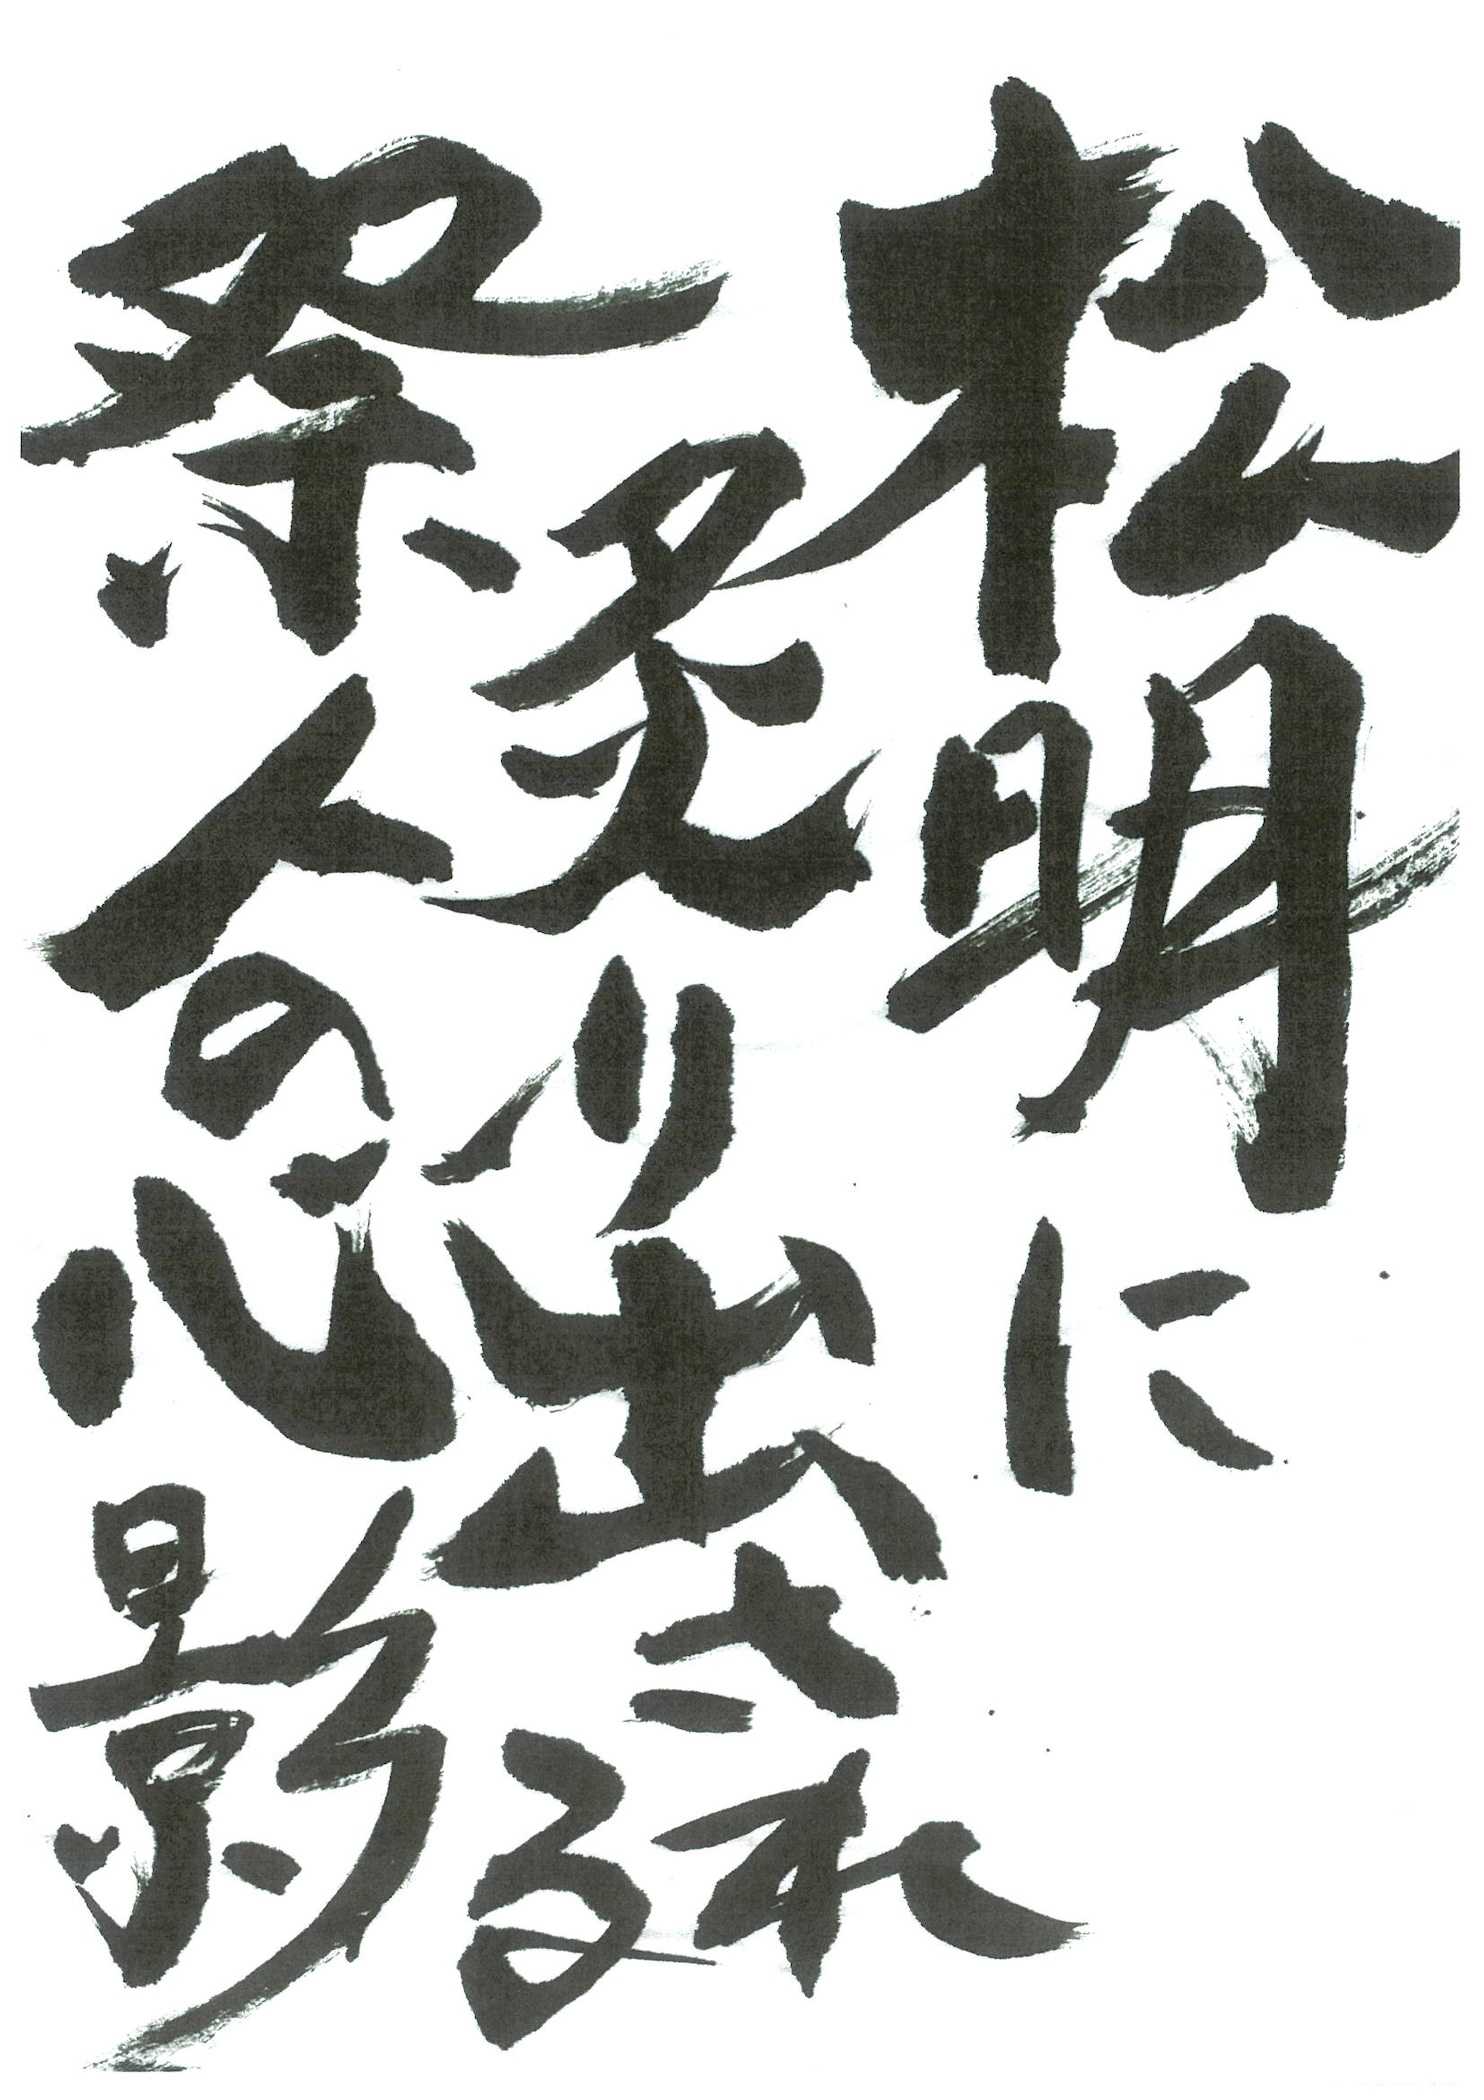 松明に
炙り出される
祭人の心影